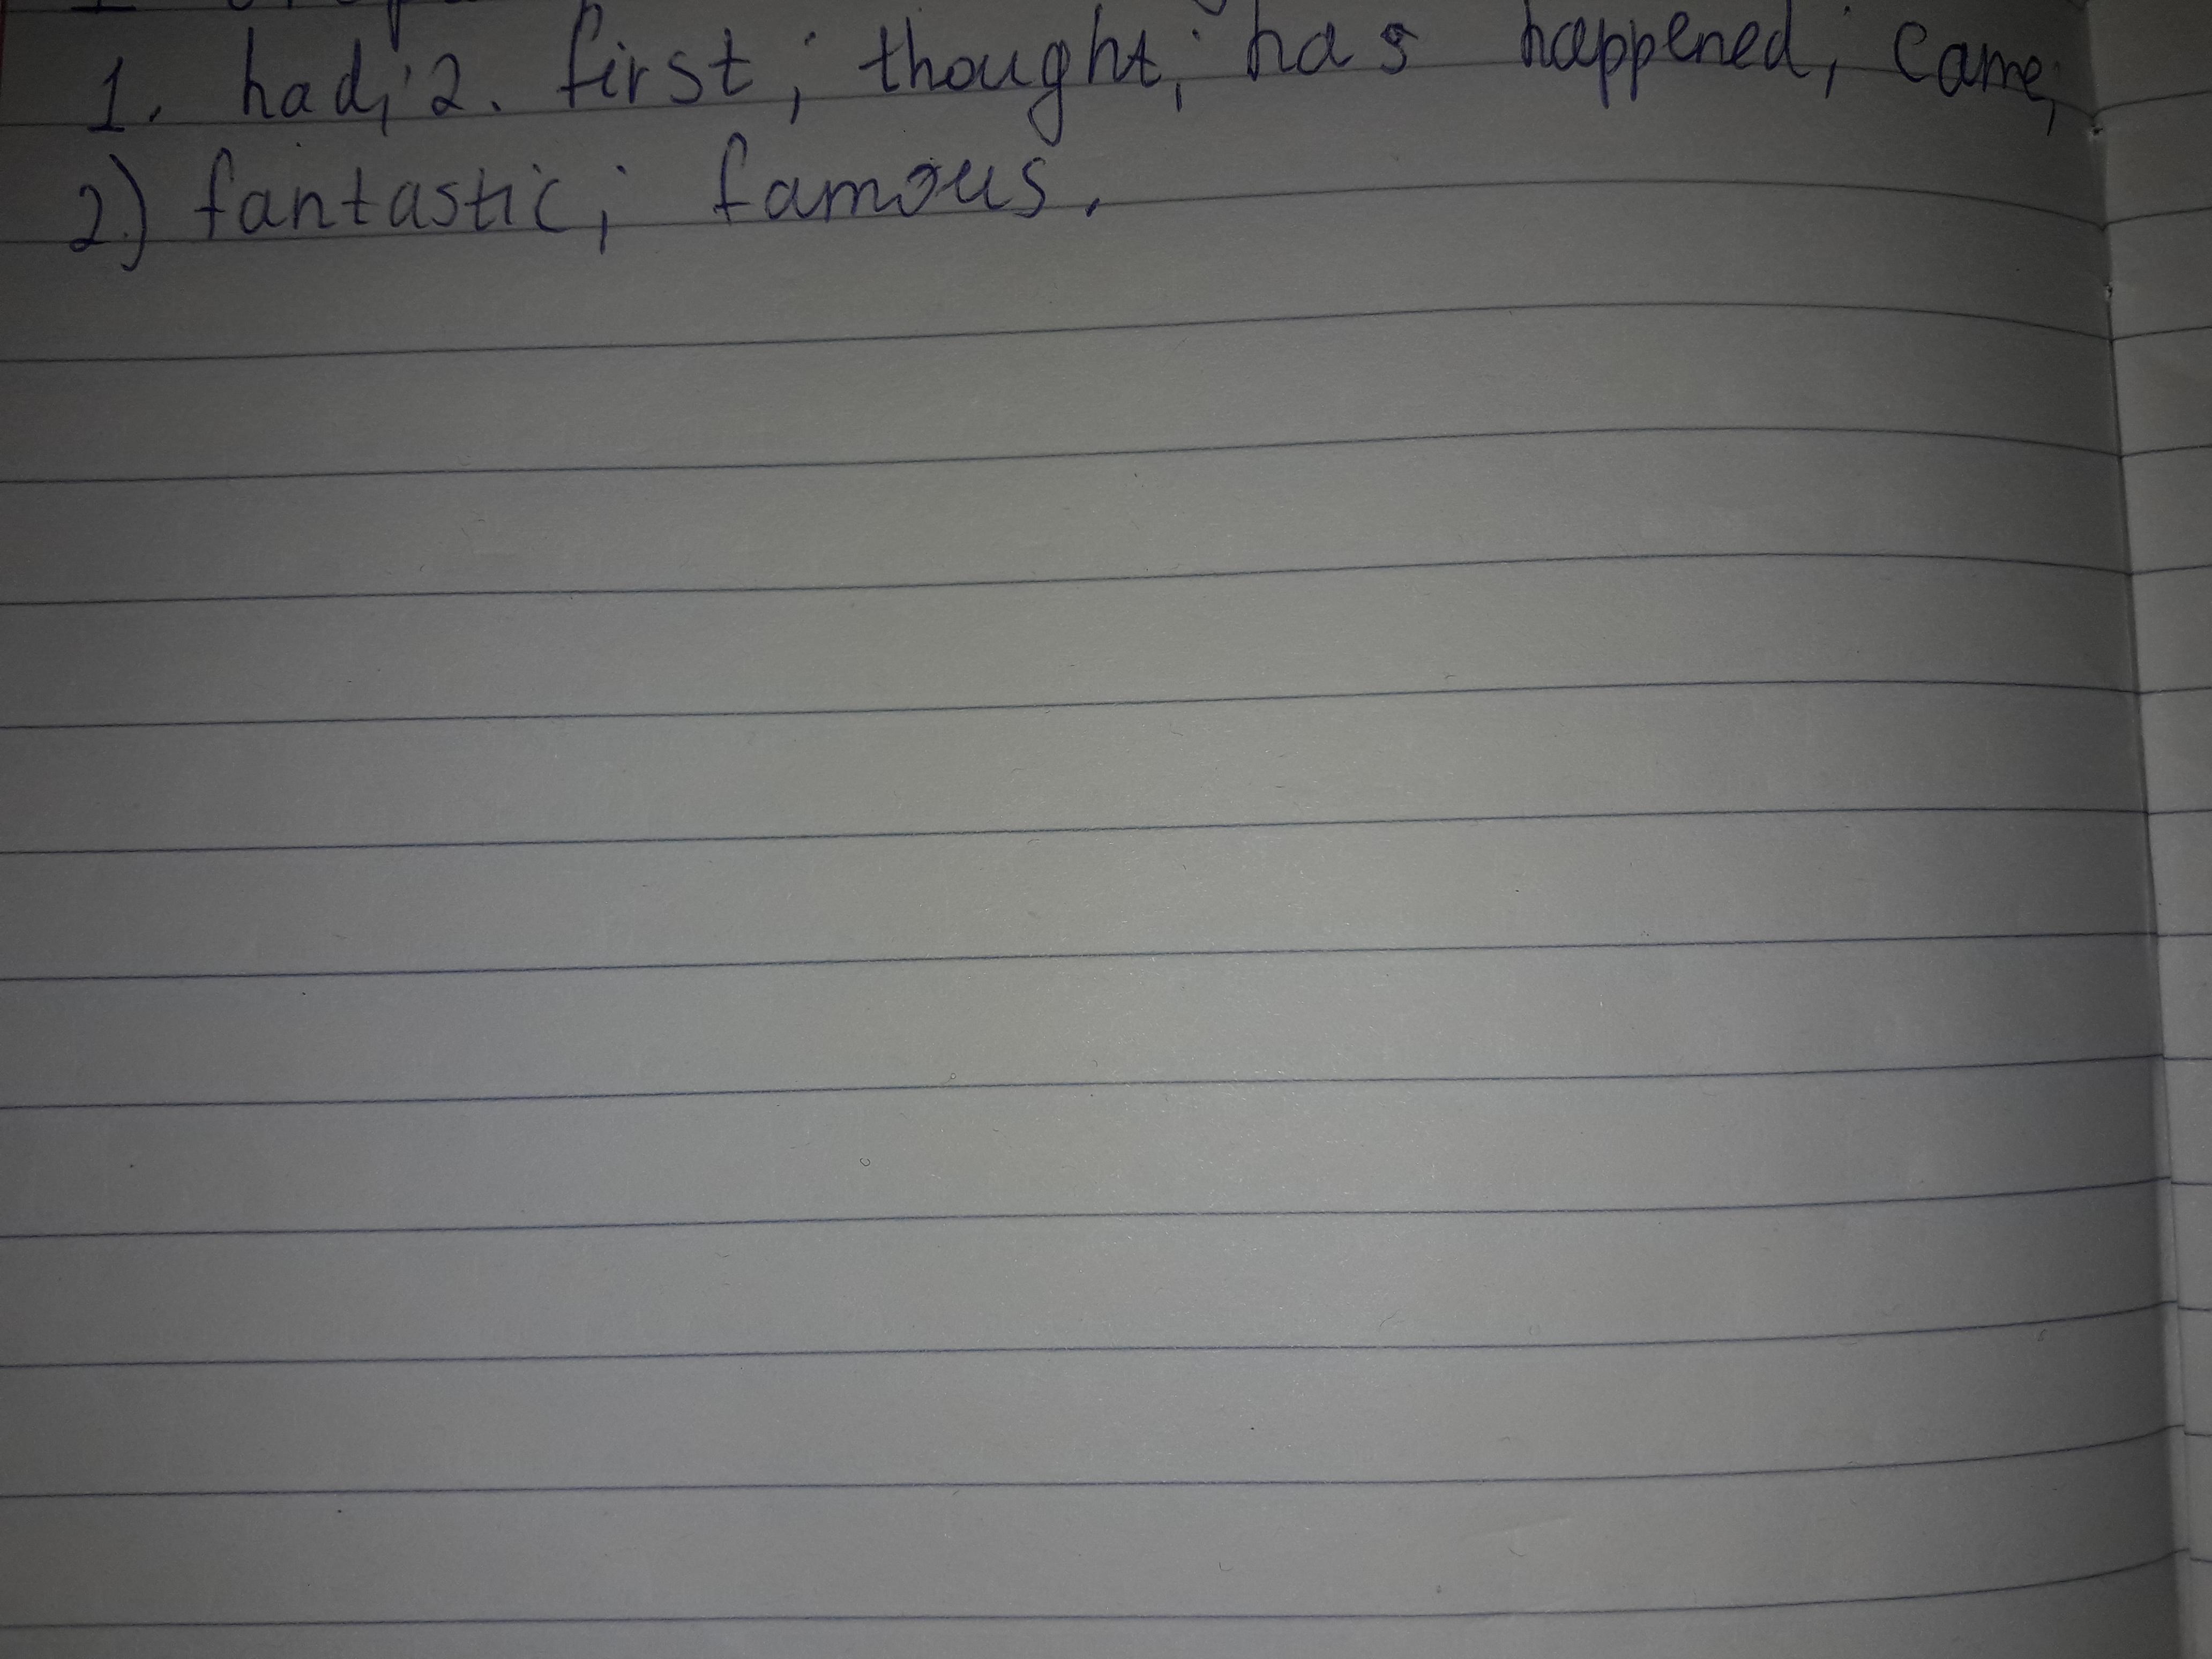 1. had; 2. first; thought; has happened; came;
2) fantastic; famous.